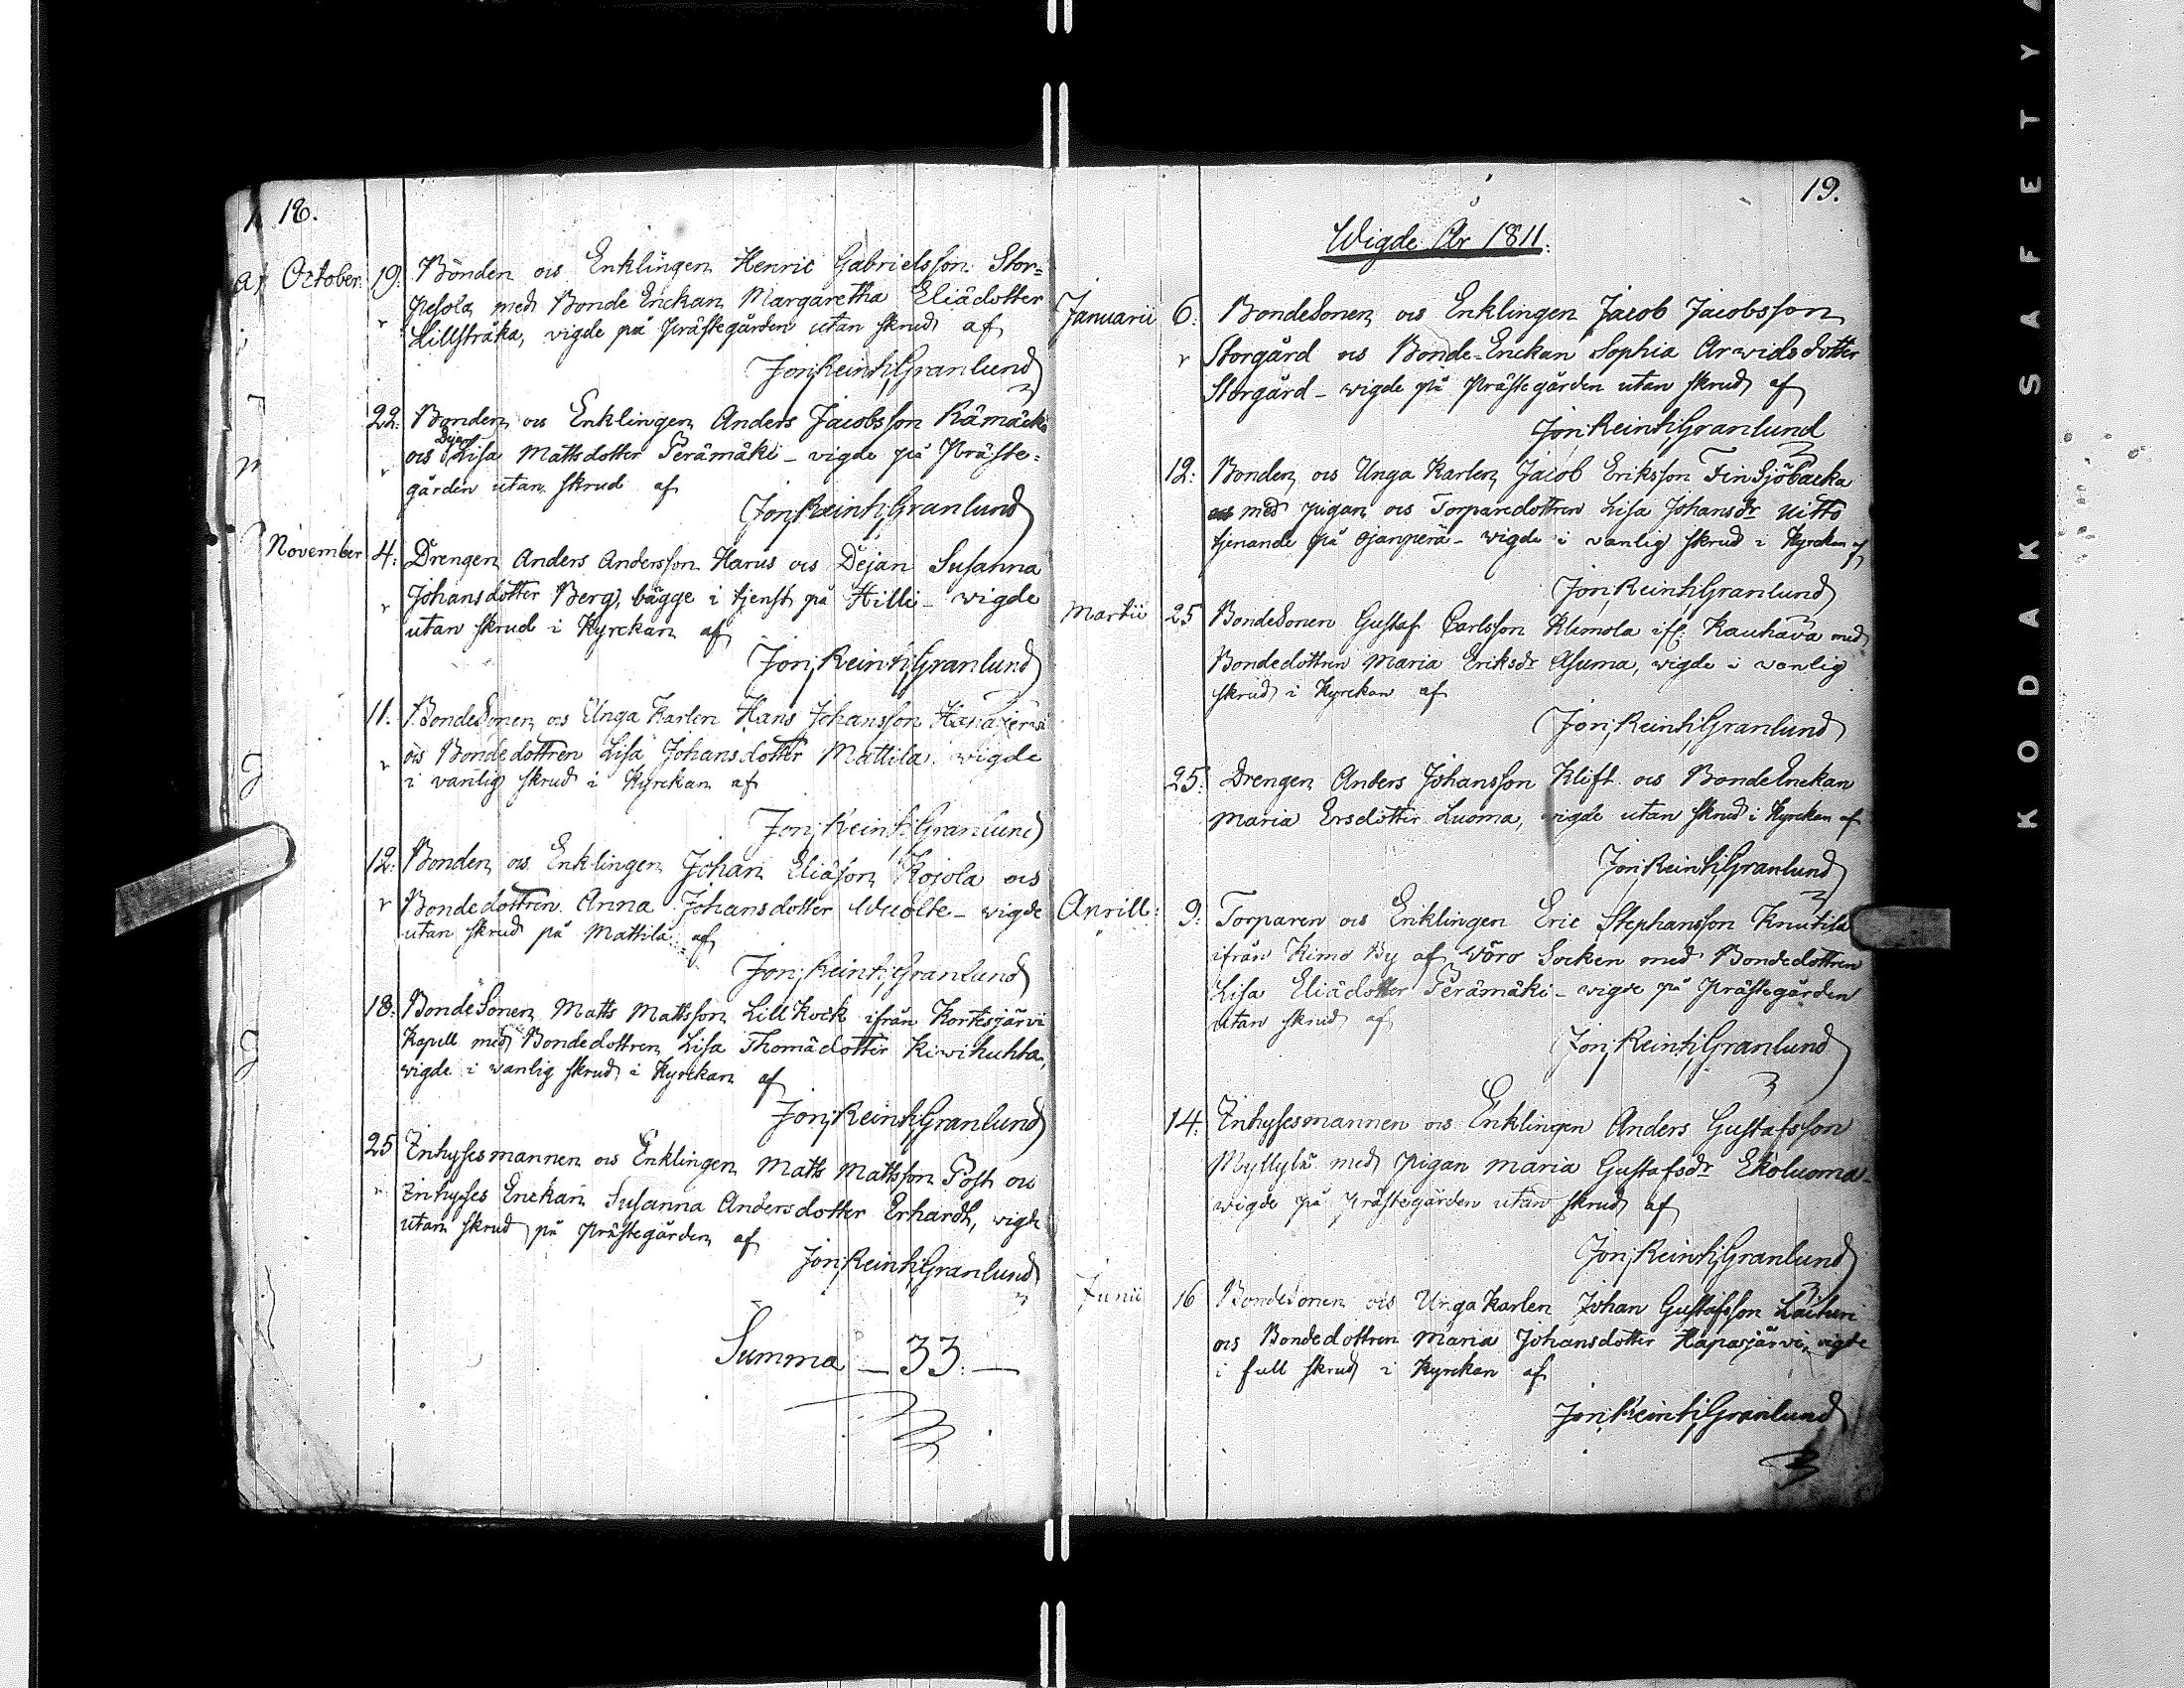 18.
October. 19. Bonden ocs Enklingen Henric Gabrielsson Stor=
Pesola med Bonde Enckan Margaretha Eliædotter
Lillstråka, vigde på Prästegården utan skrud af
Jon; Reinh; Granlund
22. Bonden ocs Enklingen Anders Jacobsson Rämäcki
Dejan
ocs Lisa Mattsdotter Perämäki - vigde på Präste=
gården utan skrud af
Jon; Reinh; Granlund
November 4. Drengen Anders Andersson Harus ocs Dejan Susanna
Johansdotter Berg, bägge i tjenst på Hilli - vigde
utan skrud i Kyrckan af
Jon; Reinh; Granlund
11. BondeSonen ocs Unga Karlen Hans Johansson
ocs Bondedottren Lisa Johansdotter Mattila vigde
i vanlig skrud i Kyrckan af
Jon; Reinh; Granlund
12. Bonden ocs Enklingen Johan Eliæson Kojola ocs
Bondedottren Anna Johansdotter Wuolte - vigde
utan skrud på Mattila af
Jon; Reinh; Granlund
18. BondeSonen Matts Mattsson Lill Kock ifrån Kortesjärvi
Kapell med Bondedottren Lisa Thomædotter Kiwihuhta,
vigde i vanlig skrud i Kyrckan af
Jon; Reinh; Granlund
25 Inhysesmannen ocs Enklingen Matts Mattsson Post ocs
Inhyses Enckan Susanna Andersdotter Erhardt, vigde
utan skrud på Prästegården af
Jon; Reinh; Granlund
Summa - 33. -
19.
Wigde År 1811.
Januarii 6. BondeSonen ocs Enklingen Jacob Jacobsson
Storgård ocs Bonde-Enckan Sophia Arwidsdotter
Storgård - wigde på Prästegården utan skrud af
Jon; Reinh; Granlund
12: Bonden ocs Unga Karlen Jacob Eriksson Finsjöbacka
med pigan ocs Torparedottren Lisa Johansdr Uitto
tjenande på Ojanperä - wigde i vanlig skrud i Kyrckan af
Jon; Reinh; Granlund
Martii 25 BondeSonen Gustaf Carlsson Klemola ifr: Kauhava med
Bondedottren Maria Eriksdr Asuma, wigde i vanlig
skrud i Kyrckan af
Jon; Reinh; Granlund
25. Drengen Anders Johansson Klift ocs BondeEnckan
Maria Ersdotter Luoma, vigde utan skrud i Kyrckan af
Jon; Reinh; Granlund
Aprill: 9: Torparen ocs Enklingen Eric Stephansson Knutila
ifrån Kimo By af Wöro Socken med Bondedottren
Lisa Eliædotter Perämäki - wigde på Prästegården
utan skrud af
Jon; Reinh; Granlund
14. Inhysesmannen ocs Enklingen Anders Gustafsson
Myllylä med pigan Maria Gustafsdr Ekoluoma -
wigde på Prästegården utan skrud af
Jon; Reinh; Granlund
Junii 16 BondeSonen ocs Unga Karlen Johan Gustafsson
ocs Bondedottren Maria Johansdotter Hapajärvi, wigde
i full skrud i Kyrckan af
Jon; Reinh; Granlund
KODAK SAFETY